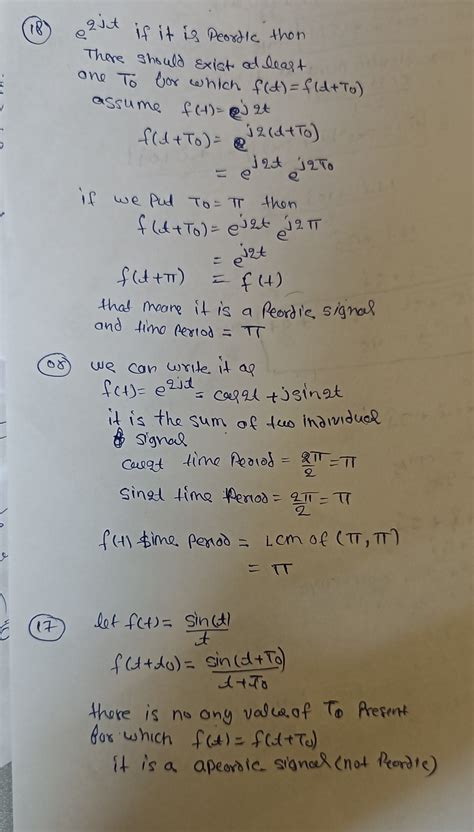 (18) e^2jt if it is Peordic then
There should exist at least
one To for which f(t)=f(t+To)
assume f(t)=e^j2t
f(t+To)= e^j2(t+To)
= e^j2t e^j2To
if we put To=π then
f(t+To)=e^j2t e^j2π
= e^j2t
f(t+π) = f(t)
that means it is a Peordic signal
and time Period = π
(or) we can write it as
f(t)= e^2jt = cos2t +jsin2t
it is the sum of two individual
signal
cos2t time Period = 2π/2 = π
sin2t time Period = 2π/2 = π
f(t) time Period = LCM of (π,π)
= π
(17) let f(t)= sin(t)/t
f(t+to)= sin(t+To)/t+To
there is no any value of To Present
for which f(t)=f(t+To)
it is a apeordic signal (not Peordic)